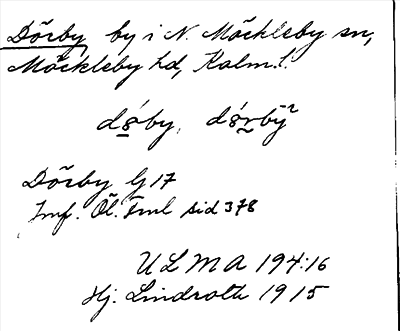 Dörby by i N. Möckleby sn,
Möckleby hd, Kalm. l.
dǿby, dǿrbȳ²
Dörby G 17
Jmf. Öl. Fml sid 378
ULMA 194:16
Hj. Lindroth 1915